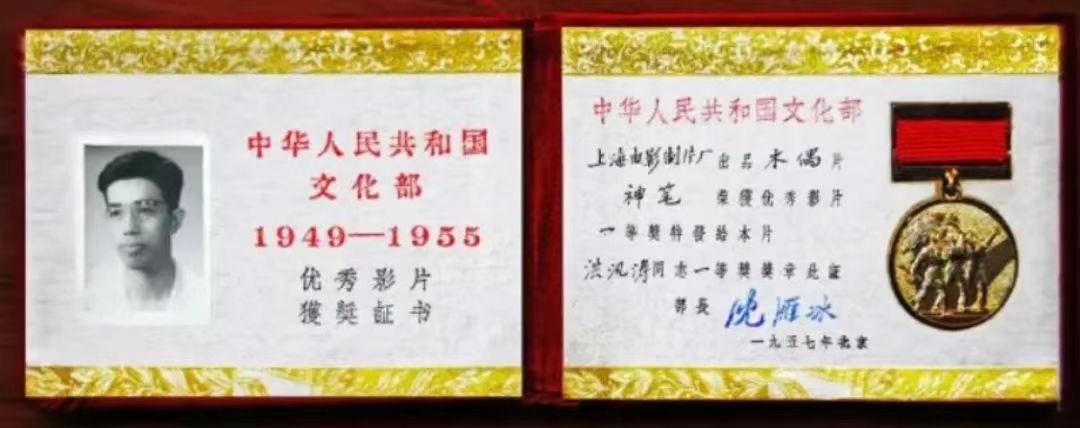 中华人民共和国
文化部
1949—1955
优秀影片
獲獎証书
中华人民共和国文化部
上海电影制片厂出品木偶片
神笔荣獲优秀影片
一等獎特發给本片
洪汛涛同志一等獎獎章此証
部長 沈雁冰
一九五七年北京